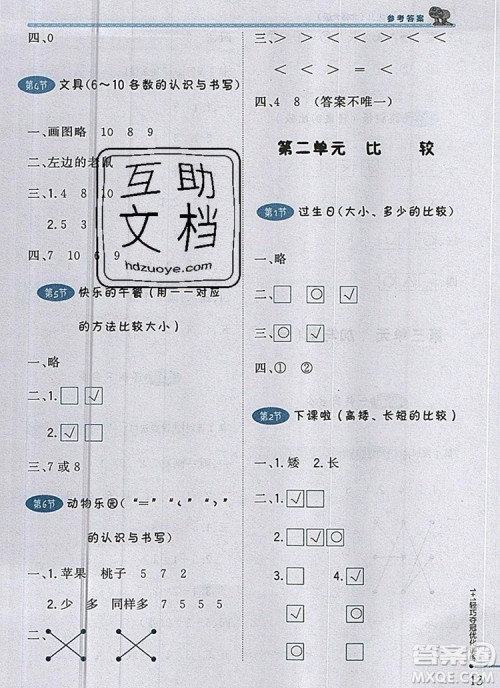 参考答案
四、0
第4节 文具(6～10各数的认识与书写)
一、画图略 10 8 9
二、左边的老鼠
三、1.4
2.5 3
四、7 10 6 9
第5节 快乐的午餐(用一一对应
的方法比较大小)
一、略
二、1.□ ☑
2.☑ □
三、7或8
第6节 动物乐园(“=”“<”“>”
的认识与书写)
一、1.苹果 桃子 5 7 2
2.少 多 同样多 1 5 5 2
二、
三、> < > =
< < = < > <
四、4 8 (答案不唯一)
第二单元 比 较
第1节 过生日(大小、多少的比较)
一、略
二、
三、
四、① ②
第2节 下课啦(高矮、长短的比较)
一、1.矮 2.长
二、1.
2.
3. 4.
互助
文档
hdzuoye.com
1+1轻巧夺冠优化
13
答案圈
MXQE.COM